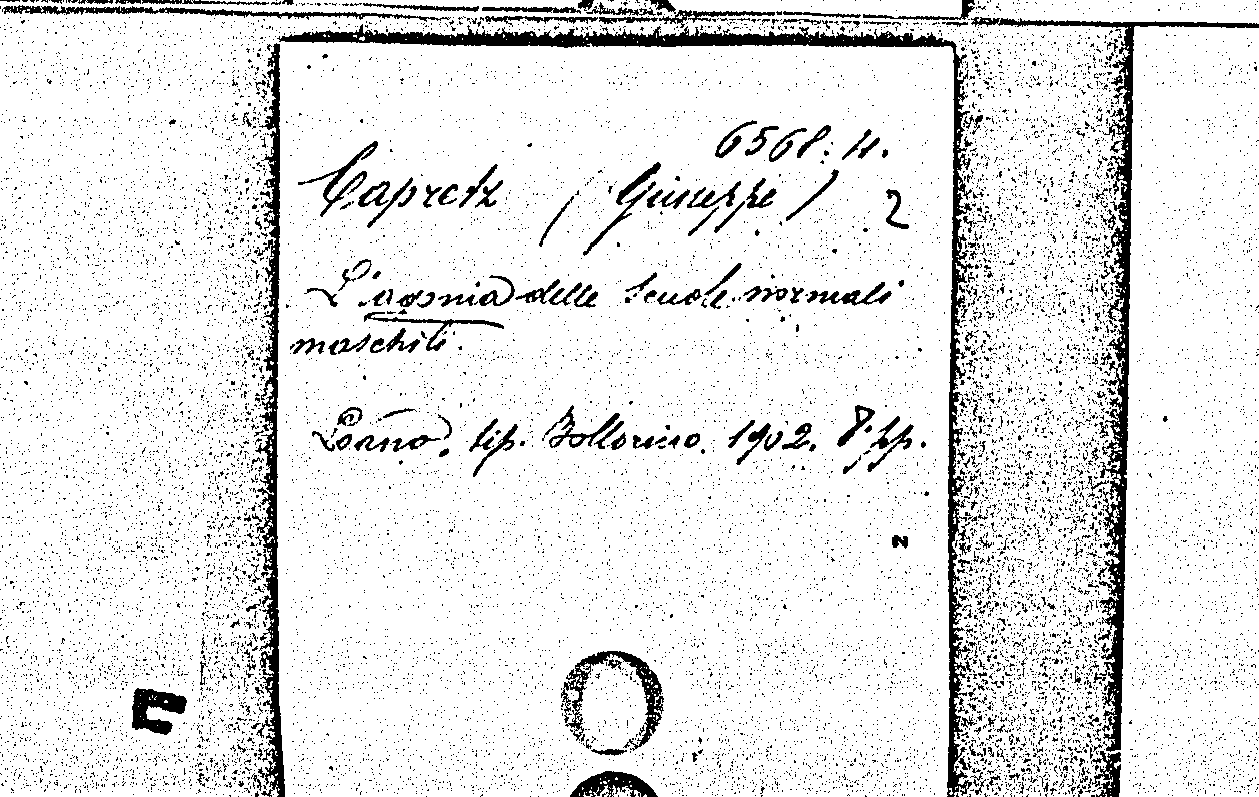 6568. H.
Capretz (Giuseppe) 2
L'agonia delle scuole normali
maschili.
Loano, tip. Bollorino. 1902. 8. pp.
N